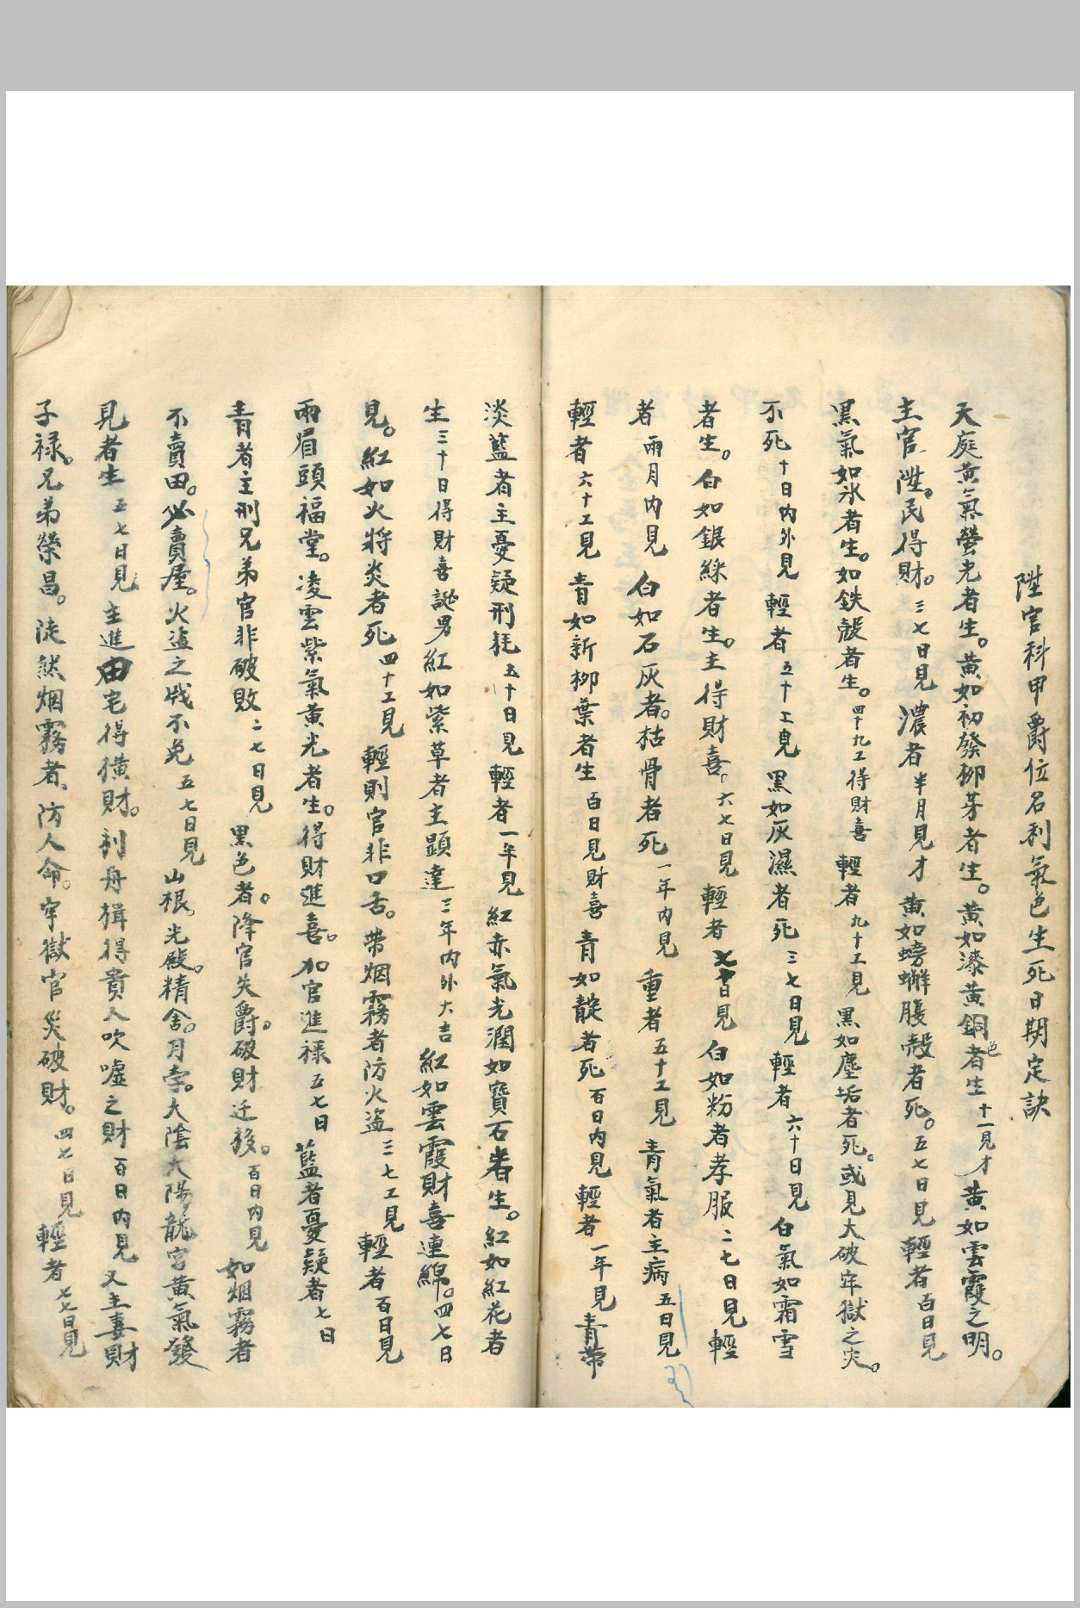 陞官科甲爵位名利氣色生死日期定訣
天庭黃氣螢光者生。黃如初發柳芽者生。黃如漆黃銅色者生十一見才黃如雲霞之明。
主官陞。民得財。三七日見濃者半月見才黃如螃蠏腹殼者死。五七日見輕者百日見
黑氣如氷者生。如鉄殼者生。四十九工得財喜輕者九十工見黑如塵垢者死。或見大破牢獄之灾。
不死十日內外見輕者五十工見黑如灰濕者死三七日見輕者六十日見白氣如霜雪
者生。白如銀綵者生。主得財喜。六七日見輕者七十日見白如粉者孝服二七日見輕
者兩月內見白如石灰者。枯骨者死一年內見重者五十工見青氣者主病五日見
輕者六十工見青如新柳葉者生百日見財喜青如靛者死百日內見輕者一年見青帶
淡藍者主憂疑刑耗五十日見輕者一年見紅赤氣光潤如寶石者生。紅如紅花者
生三十日得財喜誕男紅如紫草者主顕達三年內外大吉紅如雲霞財喜連綿。四七日
見。紅如火將炎者死四十工見輕則官非口舌。帶烟霧者防火盜三七工見輕者百日見
兩眉頭福堂。凌雲紫氣黃光者生。得財進喜。加官進祿五七日藍者憂疑者七日
青者主刑兄弟官非破敗二七日見黑色者。降官失爵。破財迁移。百日內見如烟霧者
不賣田。必賣屋。火盜之戝不免五七日見山根。光殿。精舍。月孛。太陰太陽龍宮黃氣發
見者生五七日見主進田宅得橫財。利舟楫得貴人吹噓之財百日內見又主妻財
子祿。兄弟榮昌。陡然烟霧者、防人命。牢獄官災破財。四七日見輕者七七日見